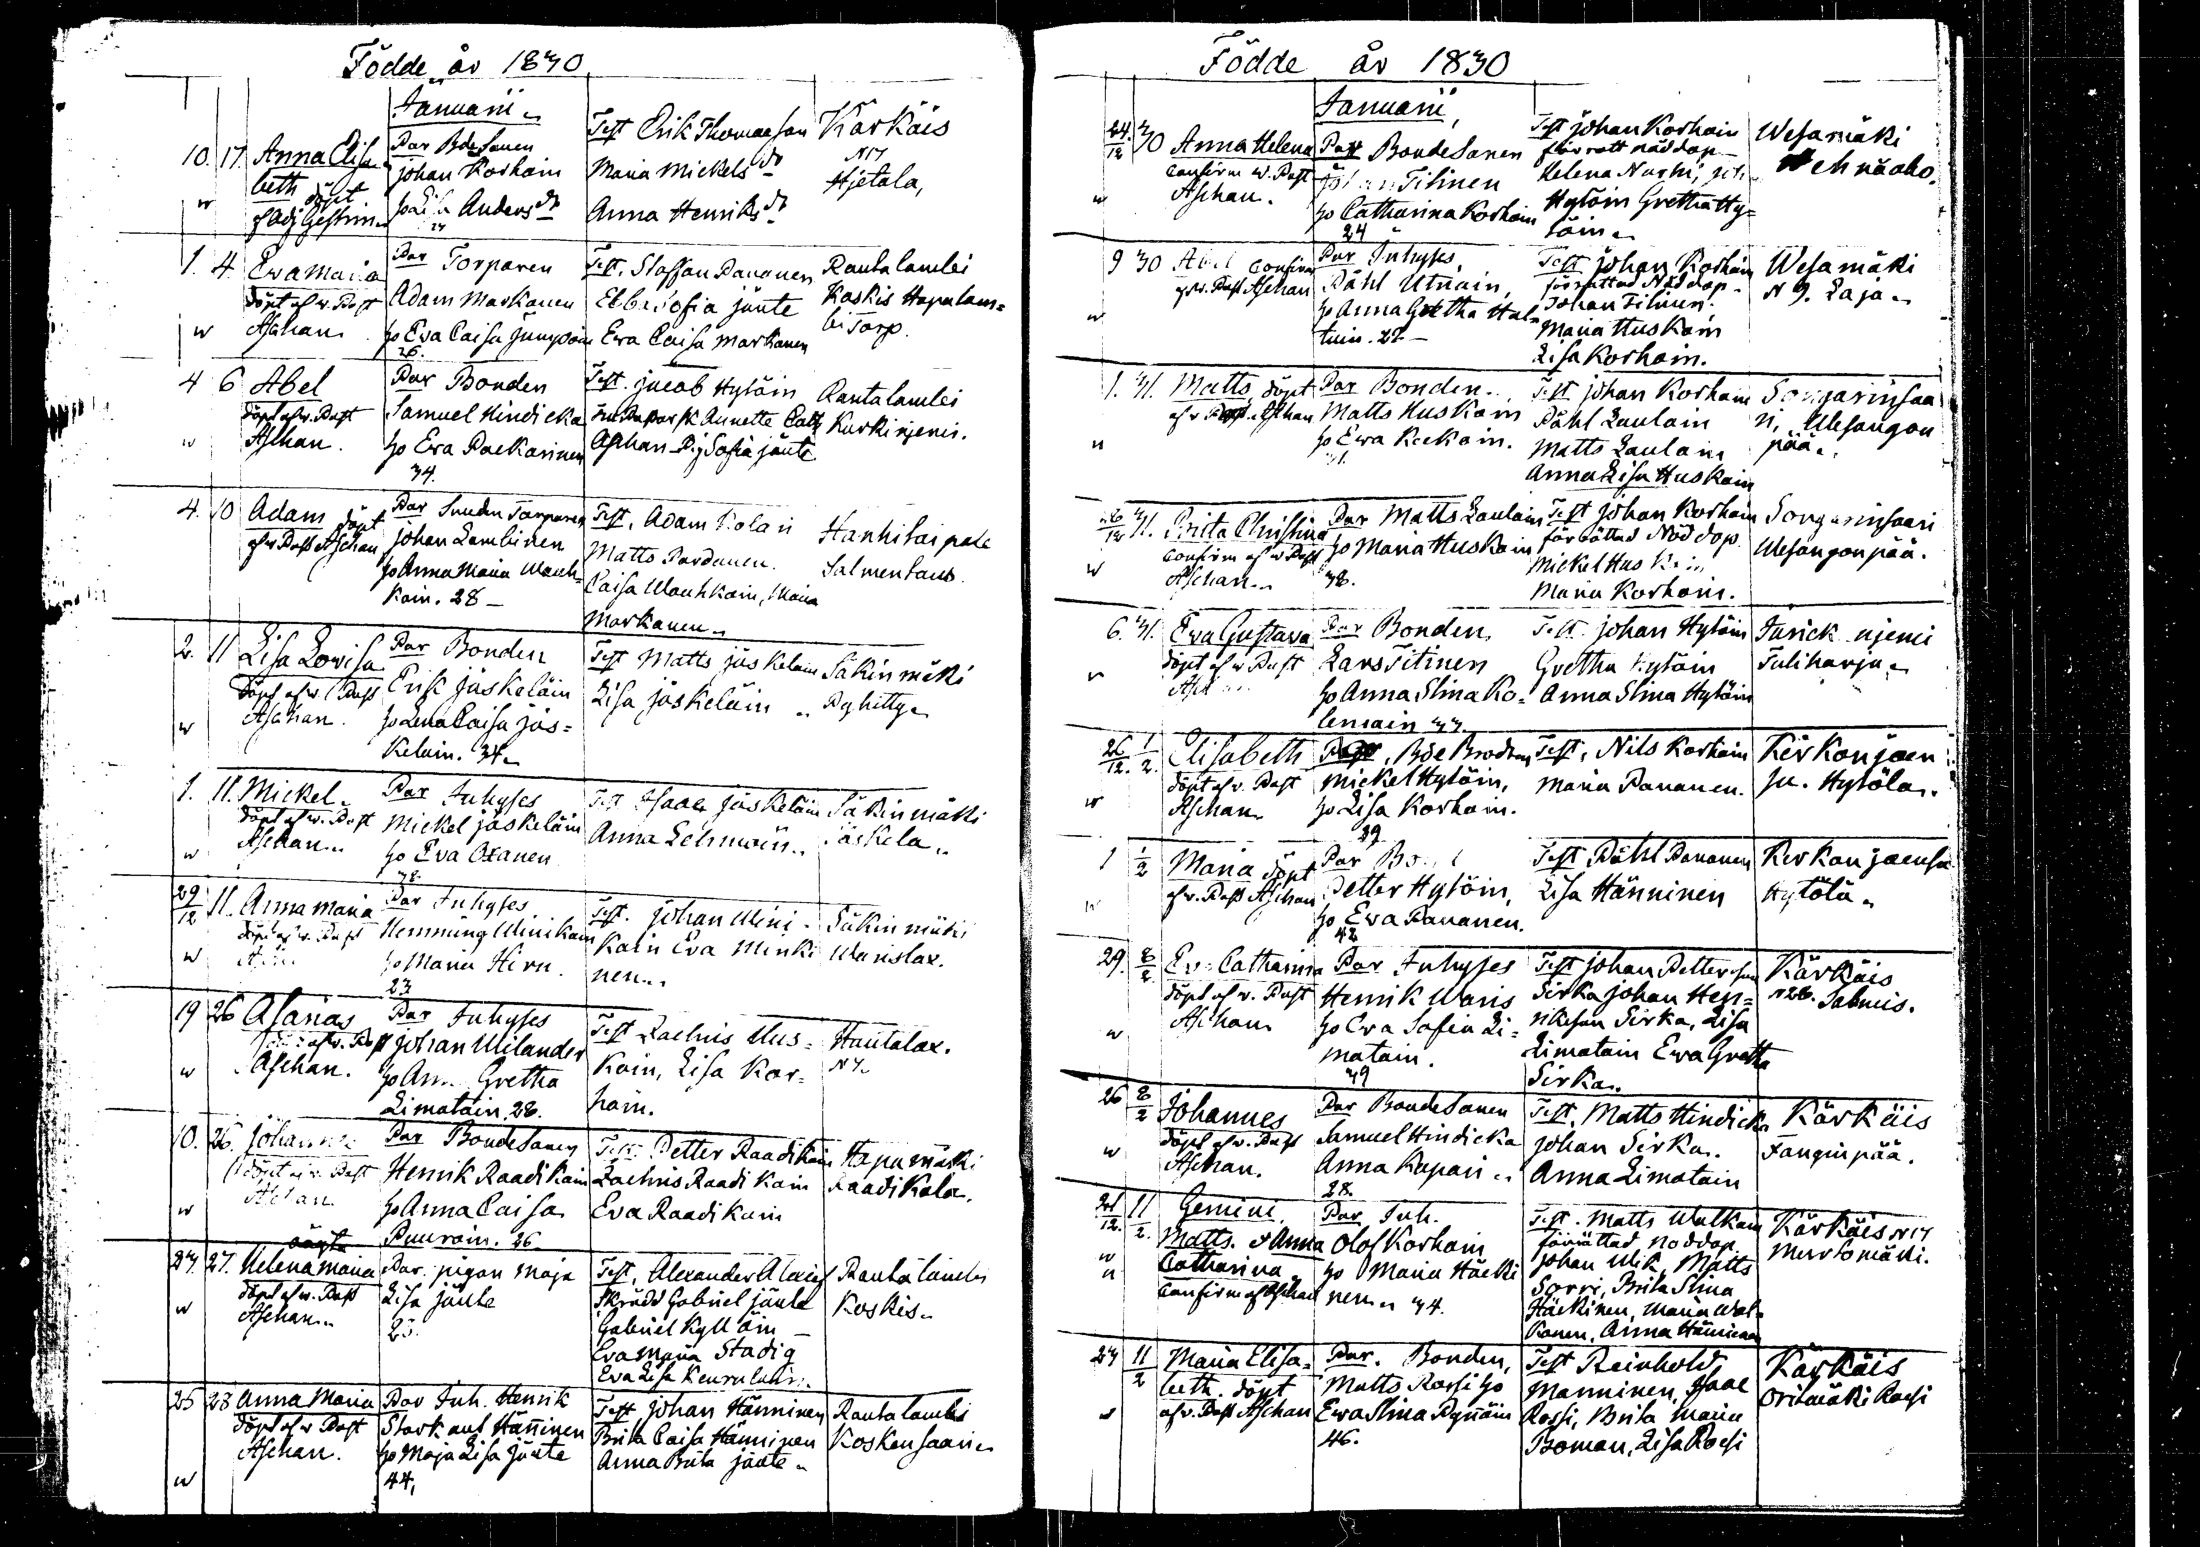 Födde år 1830
Januarii
10. 17. Anna Elisa-
beth döpt
af Adj Gestrin
Par Bdesonen
johan Korhoin
ho Lisa Anders dr
Test Erik Thomasson
Maria Mickels dr
Anna Henriks dr
Kärkäis
N 17
Hjetala,
1. 4. Eva Maria
döpt af v. Past
Aschan
Par Torparen
Adam Markanen
ho Eva Caisa
26.
Test. Staffan Pananen
Ebba Sofia jänte
Eva Caisa Markanen
Rautalambi
Koskis Hapalam=
bi Torp.
4 6 Abel
döpt af v. Past
Aschan.
Par Bonden
Samuel Hindicka
ho Eva Paekarinen
34.
Test. jacob Hytöin
Annette Cath
Aschan Pig Sofia jänte
Rautalambi
Kurkiniemi.
4. 10 Adam döpt
af v Past Aschan
Par Torparen
johan Lambinen
ho Anna Maria Wauh=
koin. 28
Test, Adam Kolari
Matts Pardanen.
Caisa Wauhkoin, Maria
Markanen
Hankitaipale
2. 11 Lisa Lovisa
döpt af v Past
Aschan.
Par Bonden
Erik jäskeläin
ho Lena Caisa jäs=
keläin. 34
Test Matts jäskeläin
Lisa jäskeläin
Säkinmäki
Pyhitty
1. 11. Mickel
döpt af v. Past
Aschan
Par Inhyses
Mickel jäskeläin
ho Eva Oxanen
38.
Test Isaac jäskeläin
Anna Lehmoin
Säkinmäki
jäskela
29/12 11. Anna Maria
döpt af v. Past
Par Inhyses
Hemming Minikain
ho Maria Hirn
23
Test. johan Mini-
kain Eva Minki
nen
Säkinmäki
19 26 Asarias
af v. Past
Aschan.
Par Inhyses
johan Wilander
ho Anna Gretha
Limatain. 28.
Test Zachris Hus=
koin, Lisa Kor=
hoin.
Hautalax.
N 7
10. 26. johannes
döpt af v. Past
Aschan
Par Bondesonen
Henrik Raadikain
ho Anna Caisa
Puuroin. 26
Test Petter Raadikain
Zachris Raadikain
Eva Raadikain
Hapamäki
Raadikala
27. 27. Helena Maria
oägta
döpt af v. Past
Aschan
Par. pigan Maja
Lisa jänte
23.
Test, Alexander
Skrädd Gabriel jänte
Gabriel Kyllöin
Eva Maria Stadig
Eva Lisa
Rautalambi
Koskis
25 28 Anna Maria
döpt af v Past
Aschan.
Par Inh. Henrik
Hänninen
ho Maja Lisa jänte
44,
Test johan Hänninen
Brita Caisa Hänninen
Anna Brita jänte
Rautalambi
Koskensaari
Födde år 1830
Januarii,
24./12 30 Anna Helena
Confirm v. Past
Aschan.
Par Bondesonen
johan Titinen
ho Catharina Korhoin
24
Test johan Korhoin
förrätt nöddop
Hytöin Gretha Hy=
töin
Wesamäki
9 30 Abel Confirm
af v. Past Aschan
Par Inhyses,
Påhl Utriain,
ho Anna Gretha Hal=
tuin. 27
Test johan Korhoin
förrättad Nöddop
Johan Titinen.
Maria Huskoin
Lisa Korhoin.
Wesamäki
N 9. Laja
1. 31. Matts, döpt
af v Past. Aschan
Par Bonden
Matts Huskoin
ho Ewa Keekoin.
31.
Test johan Korhoin
Påhl Laulain
Matts Laulain
Anna Lisa Huskoin
Songarinsaa
ri, Wesangon
pää
26/12 31. Britta Christina
Confirm af v Past
Aschan
Par Matts Laulain
ho Maria Huskoin
38.
Test johan Korhoin
förrättad Nöd dop.
Mickel Huskoin
Maria Korhoin.
Songarinsaari
Wesangonpää.
6. 31. Eva Gustava
döpt af v Past
Par Bonden,
Lars Titinen
ho Anna Stina Ko=
lemain 33
Test. johan Hytöin
Gretha Hytöin
Anna Stina Hytöin
Tuliharju
26/12. 1/2. Elisabeth
döpt af v. Past
Aschan
Par, Bde Brodren
Mickel Hytöin,
ho Lisa Korhoin.
29
Test, Nils Korhoin
Maria Pananen.
Kerkonjoen
su. Hytölä
1 1/2 Maria döpt
af v. Past Aschan
Par
Petter Hytöin,
ho Eva Pananen.
42
Test Påhl Pananen
Lisa Hänninen
Kerkonjoensu
Hytölä
29. 8/2. Eva Catharina
döpt af v. Past
Aschan
Par Inhyses
Henrik Waris
ho Eva Sofia Li=
matain.
39
Test johan Petterson
Sirka johan Hen=
rikson Sirka, Lisa
Limatain Ewa Gretha
Sirka
Kärkäis
N 26. Salmis.
26 8/2 Johannes
döpt af v. Past
Aschan.
Par Bondesonen
Samuel Hindicka
Anna Kapain
28.
Test, Matts Hindicka
johan Sirka
Anna Limatain
Kärkäis
Fanginpää.
21/12. 11/2. Gemini
Matts. & Anna
Catharina
Confirm af Aschan
Par Inh.
Olof Korhoin
ho Maria Häcki
nen 34.
Test. Matts Walkain
förrättad Nöddop.
johan Wik, Matts
Sorri, Brita Stina
Häckinen, Maria Wal=
konen, Anna Hänninen
Kärkäis N 17
Murtomäki.
27 11/2 Maria Elisa=
beth. döpt
af v. Past Aschan
Par. Bonden,
Matts Rossi ho
Ewa Stina Pynnöin
46.
Test Reinhold
Manninen, Isaac
Rossi, Brita Maria
Boman, Lisa Rossi
Kärkäis
Orimäki Rossi